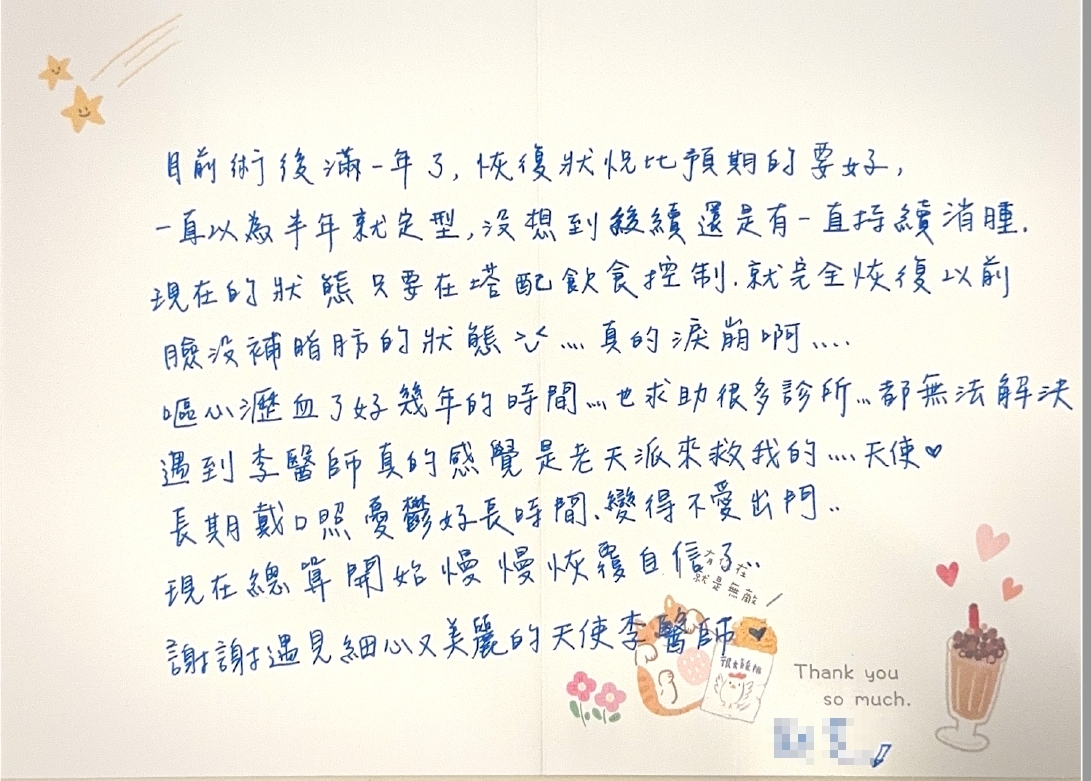 目前術後滿一年了,恢復狀況比預期的要好,
一直以為半年就定型,沒想到後續還是有一直持續消腫.
現在的狀態只要在搭配飲食控制.就完全恢復以前
臉沒補脂肪的狀態....真的淚崩啊....
嘔心瀝血了好幾年的時間...也求助很多診所...都無法解決
遇到李醫師真的感覺是老天派來救我的....天使♥
長期戴口照憂鬱好長時間.變得不愛出門..
現在總算開始慢慢恢覆自信了..
有 在
就是無敵
謝謝遇見細心又美麗的天使李醫師♥
Thank you
so much.